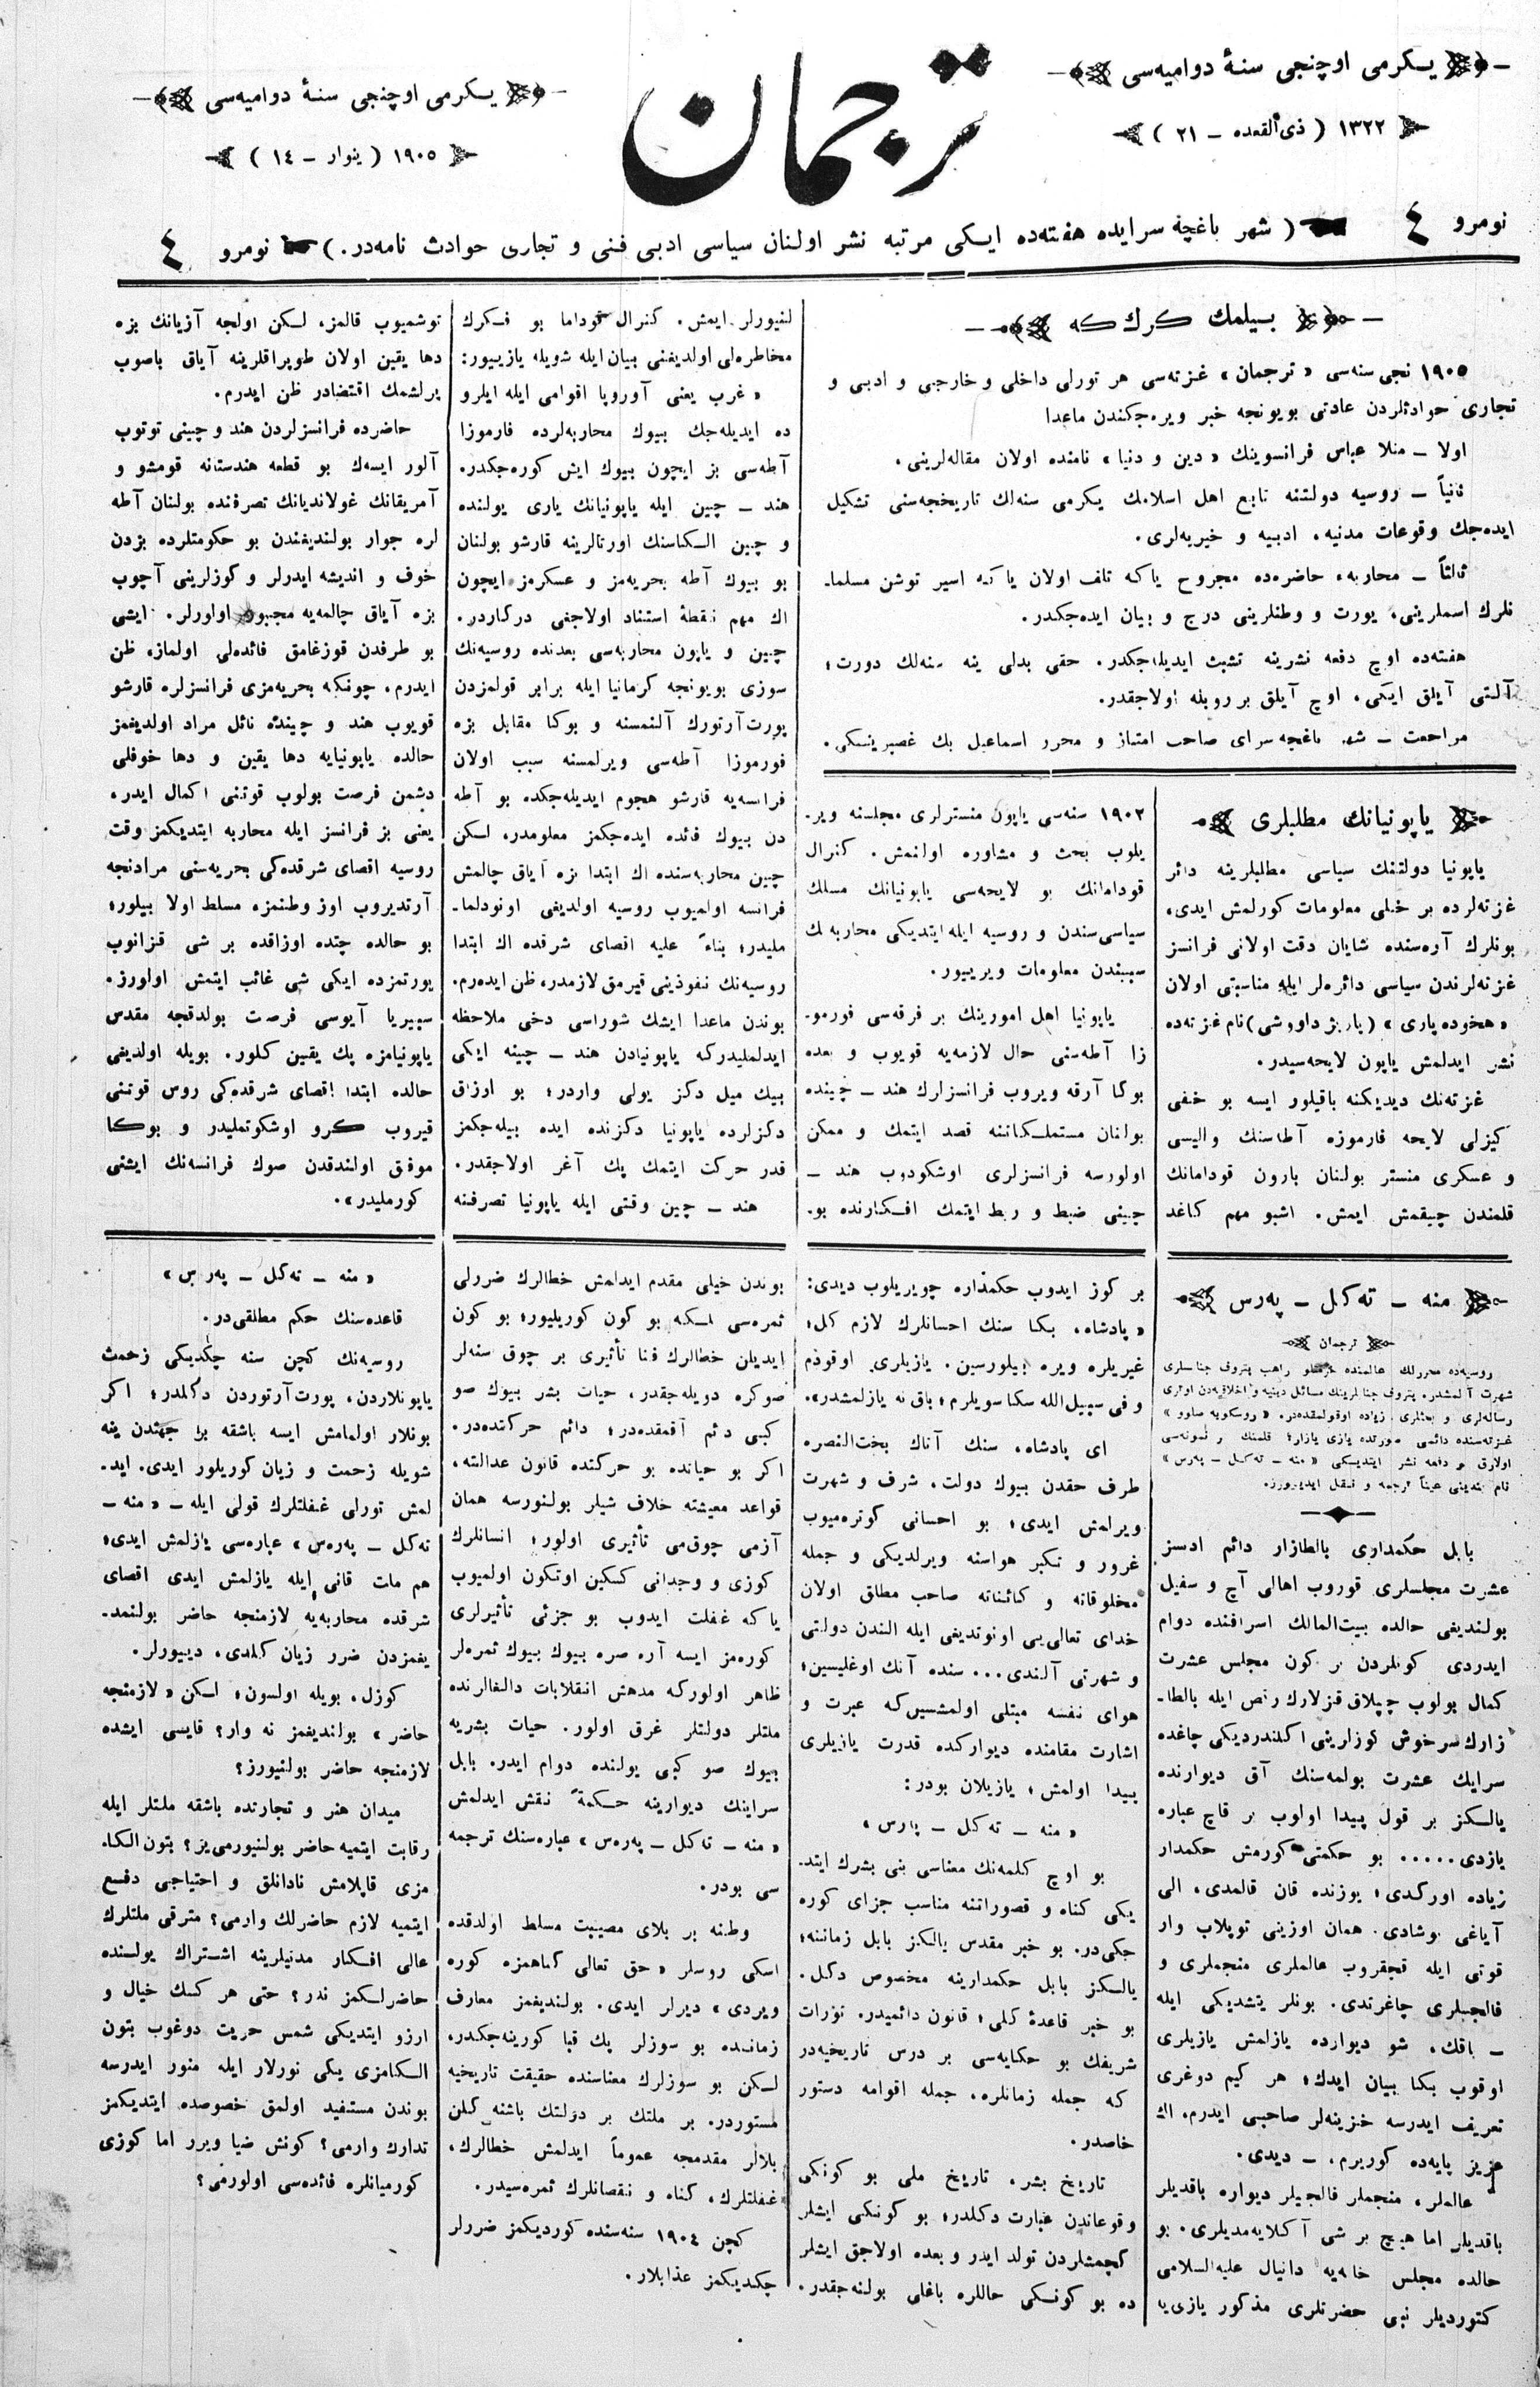 یكرمی اوچنجی سنهٔ دوامیه‌سی
١٣٢٢ ( ذی‌القعده – ٢١ )
ترجمان
یكرمی اوچنجی سنهٔ دوامیه‌سی
١٩٠٥ ( ینوار – ١٤ )
نومرو ٤ ( شهر باغچه سرایده هفته‌ده ایكی مرتبه نشر اولنان سیاسی ادبی فنی و تجاری حوادث نامه‌در. ) نومرو ٤
بیلمك كرك كه
١٩٠٥ نجی سنه‌سی « ترجمان » غزته‌سی هر تورلی داخلی و خارجی و ادبی و
تجاری حوادثلردن عادتی بویونجه خبر ویره‌جكندن ماعدا
اولا – منلا عباس فرانسوینك « دین و دنیا » نامنده اولان مقاله‌لرینی،
ثانیاً – روسیه دولتنه تابع اهل اسلامك یكرمی سنه‌لك تاریخچه‌سنی تشكیل
ایده‌جك وقوعات مدنیه، ادبیه و خیریه‌لری.
ثالثاً – محاربهء حاضره‌ده مجروح یاكه تلف اولان یاكه اسیر توشن مسلما-
نلرك اسملرینی، یورت و وطنلرینی درج و بیان ایده‌جكدر.
هفته‌ده اوچ دفعه نشرینه تشبث ایدیله‌جكدر. حقی بدلی ینه سنه‌لك دورت؛
آلتی آیلق ایكی، اوچ آیلق بر روبله اولاجقدر.
مراجعت – شهر باغچه‌سرای صاحب امتیاز و محرر اسماعیل بك غصپرینسكی.
یاپونیانك مطلبلری
یاپونیا دولتنك سیاسی مطلبلرینه دائر
غزته‌لرده بر خیلی معلومات كورلمش ایدی،
بونلرك آره‌سنده شایان دقت اولانی فرانسز
غزته‌لرندن سیاسی دائره‌لر ایله مناسبتی اولان
نشر ایدلمش یاپون لایحه‌سیدر.
غزته‌نك دیدیكنه باقیلور ایسه بو خفی
كیزلی لایحه فارموزه آطه‌سنك والیسی
و عسكری منستر بولنان بارون قودامانك
قلمندن چیقمش ایمش. اشبو مهم كاغد
١٩٠٢ سنه‌سی یاپون منسترلری مجلسنه ویر-
یلوب بحث و مشاوره اولنمش. كنرال
قودامانك بو لایحه‌سی یاپونیانك مسلك
سیاسی‌سندن و روسیه ایله ایتدیكی محاربه‌نك
سببندن معلومات ویریبور.
یاپونیا اهل امورینك بر فرقه‌سی فورمو-
زا آطه‌سنی حال لازمه‌یه قویوب و بعده
بوكا آرقه ویروب فرانسزلرك هند – چینده
بولنان مستملكاتنه قصد ایتمك و ممكن
اولورسه فرانسزلری اوشكودوب هند –
چینی ضبط و ربط ایتمك افكارنده بو-
لنیورلر ایمش. كنرال قوداما بو فكرك
مخاطره‌لی اولدیغنی بیان ایله شویله یازییور:
« غرب یعنی آوروپا اقوامی ایله ایلرو
ده ایدیله‌جك بیوك محاربه‌لرده فارموزا
آطه‌سی بز ایچون بیوك ایش كوره‌جكدر.
هند – چین ایله یاپونیانك یاری یولنده
و چین الكاسنك اورتالرینه قارشو بولنان
بو بیوك آطه بحریه‌مز و عسكرمز ایچون
اك مهم نقطهٔ استناد اولاجغی دركاردر.
چین و یاپون محاربه‌سی بعدنده روسیه‌نك
سوزی بویونجه كرمانیا ایله برابر قولمزدن
پورت آرتورك آلنمسنه و بوكا مقابل بزه
فورموزا آطه‌سی ویرلمسنه سبب اولان
فرانسه‌یه قارشو هجوم ایدیله‌جكده بو آطه
دن بیوك فائده ایده‌جكمز معلومدر، لسكن
چین محاربه‌سنده اك ابتدا بزه آیاق چالمش
فرانسه اولمیوب روسیه اولدیغی اونودلما-
ملیدر؛ بناءً علیه اقصای شرقده اك ابتدا
روسیه‌نك نفوذینی قیرمق لازمدر، ظن ایده‌رم.
بوندن ماعدا ایشك شوراسی دخی ملاحظه
ایدلملیدركه یاپونیادن هند – چینه ایكی
بیك میل دكز یولی واردر؛ بو اوزاق
دكزلرده یاپونیا دكزنده ایده بیله‌جكمز
قدر حركت ایتمك پك آغر اولاجقدر.
هند – چین وقتی ایله یاپونیا تصرفنه
توشمیوب قالمز، لسكن اولجه آزیانك بزه
دها یقین اولان طوپراقلرینه آیاق باصوب
یرلشمك اقتضادر ظن ایدرم.
حاضرده فرانسزلردن هند و چینی توتوب
آلور ایسه‌ك بو قطعه هندستانه قومشو و
آمریقانك غولاندیانك تصرفنده بولنان آطه
لره جوار بولندیغندن بو حكومتلرده بزدن
خوف و اندیشه ایدرلر و كوزلرینی آچوب
بزه آیاق چالمه‌یه مجبور اولورلر. ایشی
بو طرفدن قوزغامق فائده‌لی اولماز، ظن
ایدرم، چونكه بحریه‌مزی فرانسزلره قارشو
قویوب هند و چینده نائل مراد اولدیغمز
حالده یاپونیایه دها یقین و دها خوفلی
دشمن فرصت بولوب قوتنی اكمال ایدر،
یعنی بز فرانسز ایله محاربه ایتدیكمز وقت
روسیه اقصای شرقده‌كی بحریه‌سنی مرادنجه
آرتدیروب اوز وطنمزه مسلط اولا بیلور؛
بو حالده چتده اوزاقده بر شی قزانوب
یورتمزده ایكی شی غائب ایتمش اولورز.
سیبیریا آیوسی فرصت بولدقجه مقدس
یاپونیامزه پك یقین كلور. بویله اولدیغی
حالده ابتدا اقصای شرقده‌كی روس قوتنی
قیروب كرو اوشكوتملیدر و بوكا
موفق اولندقدن صوك فرانسه‌نك ایشنی
كورملیدر».
منه – ته‌كل – په‌رس
ترجمان
بابل حكمداری بالطازار دائم ادسز
عشرت مجلسلری قوروب اهالی آچ و سفیل
بولندیغی حالده بیت‌المالك اسرافنده دوام
ایدردی كونلردن بر كون مجلس عشرت
كمال بولوب چپلاق قزلارك رقص ایله بالطا-
زارك سرخوش كوزلرینی اكلندردیكی چاغده
سرایك عشرت بولمه‌سنك آق دیوارنده
یالكز بر قول پیدا اولوب بر قاچ عباره
یازدی..... بو حكمتی كورمش حكمدار
زیاده اوركدی؛ یوزنده قان قالمدی، الی
آیاغی بوشادی. همان اوزینی توپلاب وار
قوتی ایله قچقروب عالملری منجملری و
فالجیلری چاغرتدی. بونلر یتشدیكی ایله
– باقك، شو دیوارده یازلمش یازیلری
اوقوب بكا بیان ایدك؛ هر كیم دوغری
تعریف ایدرسه خزینه‌لر صاحبی ایدرم، اك
عزیز پایه‌ده كوریرم، – دیدی.
عالملر، منجملر فالجیلر دیواره باقدیلر
باقدیلر اما هیچ بر شی آكلایه‌مدیلری. بو
حالده مجلس خانه‌یه دانیال علیه‌السلامی
كتوردیلر نبی حضرتلری مذكور یازی‌یه
بر كوز ایدوب حكمداره چویریلوب دیدی:
« پادشاه، بكا سنك احسانلرك لازم كل؛
غیریلره ویره بیلورسین. یازیلری اوقوذم
و فی سبیل‌الله سكا سویلرم؛ باق نه یازلمشدر».
ای پادشاه، سنك آناك بخت‌النصره
طرف حقدن بیوك دولت، شرف و شهرت
ویرلمش ایدی؛ بو احسانی كوتره‌میوب
غرور و تكبر هواسنه ویرلدیكی و جمله
مخلوقاته و كائناته صاحب مطلق اولان
خدای تعالی‌یی اونوتدیغی ایله الندن دولتی
و شهرتی آلندی... سنده آنك اوغلیسین؛
هوای نفسه مبتلی اولمشسیركه عبرت و
اشارت مقامنده دیواركده قدرت یازیلری
پیدا اولمش؛ یازیلان بودر:
« منه – ته‌كل – پارس »
بو اوچ كلمه‌نك معناسی بنی بشرك ایتد-
یكی كناه و قصوراتنه مناسب جزای كوره
جكی‌در. بو خبر مقدس یالكز بابل زماننه؛
یالكز بابل حكمدارینه مخصوص دكل.
بو خبر قاعدهٔ كلی؛ قانون دائمیدر. تورات
شریفك بو حكایه‌سی بر درس تاریخیه‌در
كه جمله زمانلره، جمله اقوامه دستور
خاصدر.
تاریخ بشر، تاریخ ملی بو كونكی
وقوعاتدن عبارت دكلدر؛ بو كونكی ایشلر
كچمشلردن تولد ایدر و بعده اولاجق ایشلر
ده بو كونكی حاللره باغلی بولنه‌جقدر.
بوندن خیلی مقدم ایدلمش خطالرك ضررلی
ثمره‌سی بو كون كوریلیور؛ بو كون
ایدیلن خطالرك فنا تأثیری بر چوق سنه‌لر
صوكره دویله‌جقدر، حیات بشر بیوك صو
كبی دئم آقمقده‌در؛ دائم حركتده‌در.
اكر بو حیاتده بو حركتده قانون عدالته،
قواعد معیشته خلاف شیلر بولنورسه همان
آزمی چوق‌می تأثیری اولور؛ انسانلرك
كوزی و وجدانی كسكین اوتكون اولمیوب
یاكه غفلت ایدوب بو جزئی تأثیرلری
كوره‌مز ایسه آره صره بیوك بیوك ثمره‌لر
ظاهر اولوركه مدهش انقلابات دالغالرنده
ملتلر دولتلر غرق اولور. حیات بشریه
بیوك صو كبی یولنده دوام ایدر. بابل
سراینك دیوارینه حكمةً نقش ایدلمش
« منه – ته‌كل – په‌ره‌س » عباره‌سنك ترجمه
سی بودر.
وطنه بر بلای مصیبت مسلط اولدقده
اسكی روسلر « حق تعالی كناهمزه كوره
ویردی » دیرلر ایدی. بولندیغمز معارف
زمانده بو سوزلر پك قبا كورینه‌جكدر،
لسكن بو سوزلرك معناسنده حقیقت تاریخیه
مستوردر. بر ملتك بر دولتك باشنه كلن
بلالر مقدمجه عموماً ایدلمش خطالرك،
غفلتلرك، كناه و نقصانلرك ثمره‌سیدر.
كچن ١٩٠٤ سنه‌سنده كوردیكمز ضررلر
چكدیكمز عذابلار.
« منه – ته‌كل – په‌رس »
قاعده‌سنك حكم مطلقی‌در.
روسیه‌نك كچن سنه چكدیكی زحمت
یاپونلاردن، پورت آرتوردن دكلدر؛ اكر
بونلار اولمامش ایسه باشقه برا جهتدن ینه
شویله زحمت و زیان كوریلور ایدی. اید-
لمش تورلی غفلتلرك قولی ایله – « منه –
ته‌كل – په‌ره‌س » عباره‌سی یازلمش ایدی؛
هم مات قانی ایله یازلمش ایدی اقصای
شرقده محاربه‌یه لازمنجه حاضر بولنمد-
یغمزدن ضرر زیان كلدی، دیبورلر.
كوزل، بویله اولسون؛ لسكن « لازمنجه
حاضر » بولندیغمز نه وار؟ قایسی ایشده
لازمنجه حاضر بولنیورز؟
میدان هنر و تجارتده باشقه ملتلر ایله
رقابت ایتمیه حاضر بولنیورمی‌یز؟ بتون الكا-
مزی قاپلامش نادانلق و احتیاجی دفع
ایتمیه لازم حاضرلك وارمی؟ مترقی ملتلرك
عالی افكار مدنیلرینه اشتراك یولنده
حاضرلكمز ندر؟ حتی هر كسك خیال و
ارزو ایتدیكی شمس حریت دوغوب بتون
الكامزی یكی نورلار ایله منور ایدرسه
بوندن مستفید اولمق خصوصده ایتدیكمز
تدارك وارمی؟ كونش ضیا ویرر اما كوزی
كورمیانلره فائده‌سی اولورمی؟